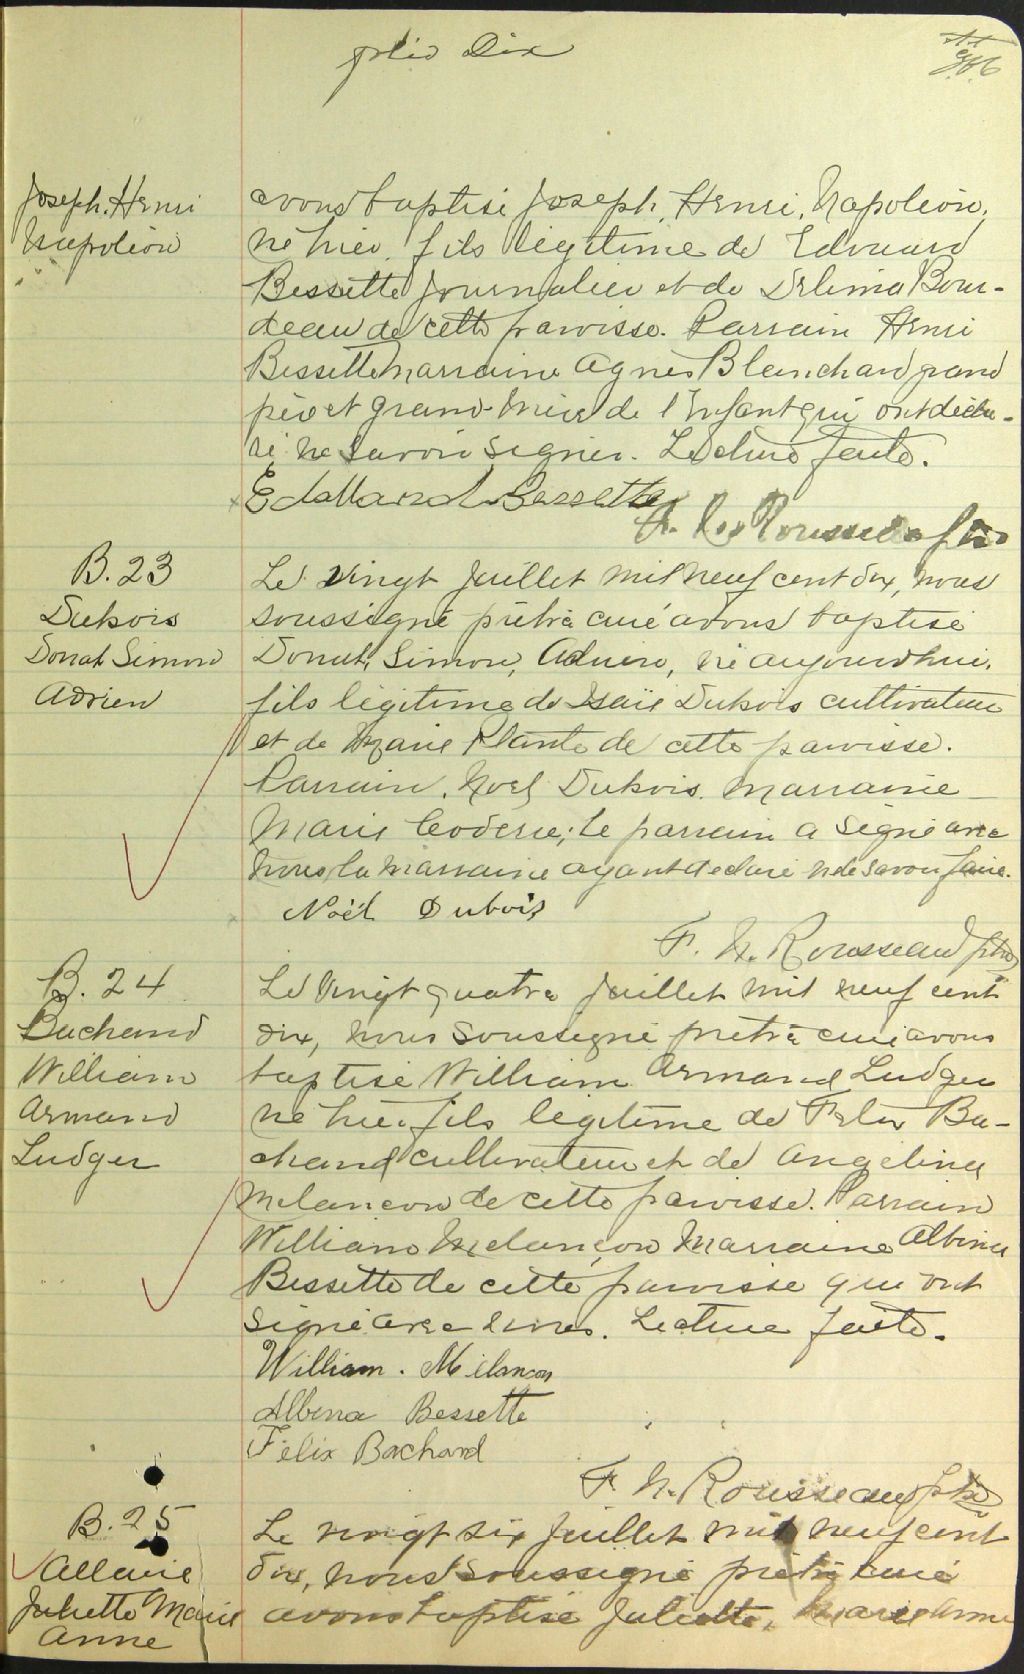 folio Dix
Joseph, Henri
Napoléon
avons baptisé Joseph, Henri, Napoléon,
né hier, fils légitime de Edouard
Bessette journalier et de Délima Bour-
deau de cette paroisse. Parrain Henri
Bessette marraine Agnès Blanchard grand
père et grand-mère de l'enfant qui ont décla-
ré ne savoir signer. Lecture faite.
Edouard Bessette
F. X. Rousseau ptre
B. 23
Dubois
Donat Simon
Adrien
Le vingt juillet mil neuf cent dix, nous
soussigné prêtre curé avons baptisé
Donat, Simon, Adrien, né aujourd'hui,
fils légitime de Isaïe Dubois cultivateur
et de Marie Plante de cette paroisse.
Parrain, Noël Dubois marraine
Marie Coderre; le parrain a signé avec
nous la marraine ayant déclaré ne savoir faire.
Noël Dubois
F. X. Rousseau ptre
B. 24
Bachand
William
Armand
Ludger
Le vingt quatre juillet mil neuf cent
dix, nous soussigné prêtre curé avons
baptisé William Armand Ludger
né hier fils légitime de Felix Ba-
chand cultivateur et de Angelina
Melançon de cette paroisse. Parrain
William Melançon Marraine Albina
Bessette de cette paroisse qui ont
signé avec nous. Lecture faite.
William. Melancon
Albena Bessette
Félix Bachand
F. X. Rousseau ptre
B. 25
Allaire
Juliette Marie
Anne
Le vingt six juillet mil neuf cent
dix, nous soussigné prêtre curé
avons baptisé Juliette, Marie Anne